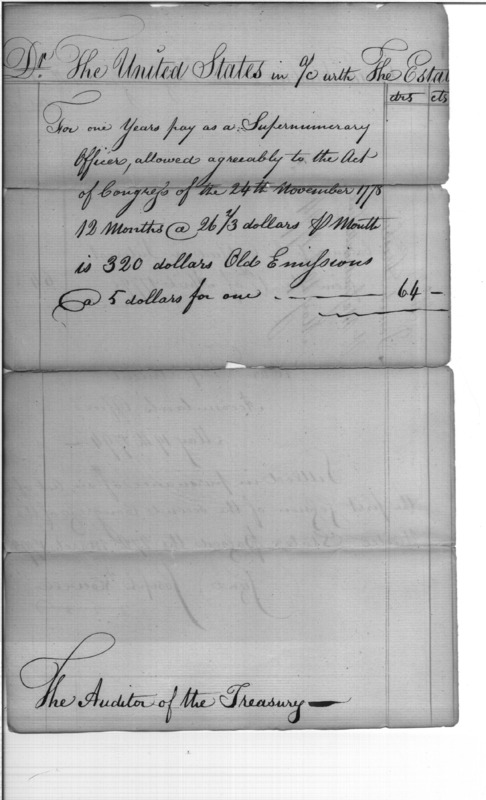 Dr. The United States in a/c with The Estat
drs cts
For one Years pay as a Supernumerary
Officer, allowed agreeably to the Act
of Congress of the 24th November 1778
12 Months @ 26 2/3 dollars ⅌ Month
is 320 dollars Old Emissions
@ 5 dollars for one — 64 —
The Auditor of the Treasury —